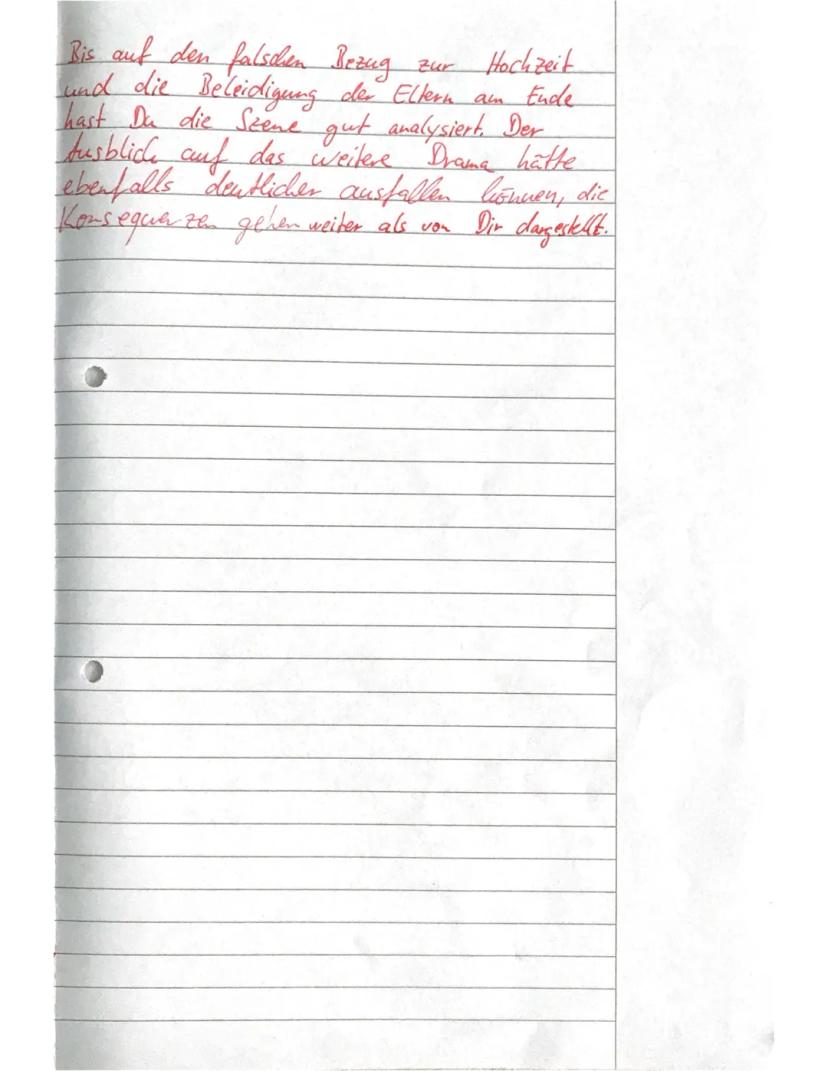 Bis auf den falschen Bezug zur Hochzeit
und die Beleidigung der Eltern am Ende
hast Du die Szene gut analysiert. Der
Ausblick auf das weitere Drama hätte
ebenfalls deutlicher ausfallen können, die
Konsequenzen gehen weiter als von Dir dargestellt.